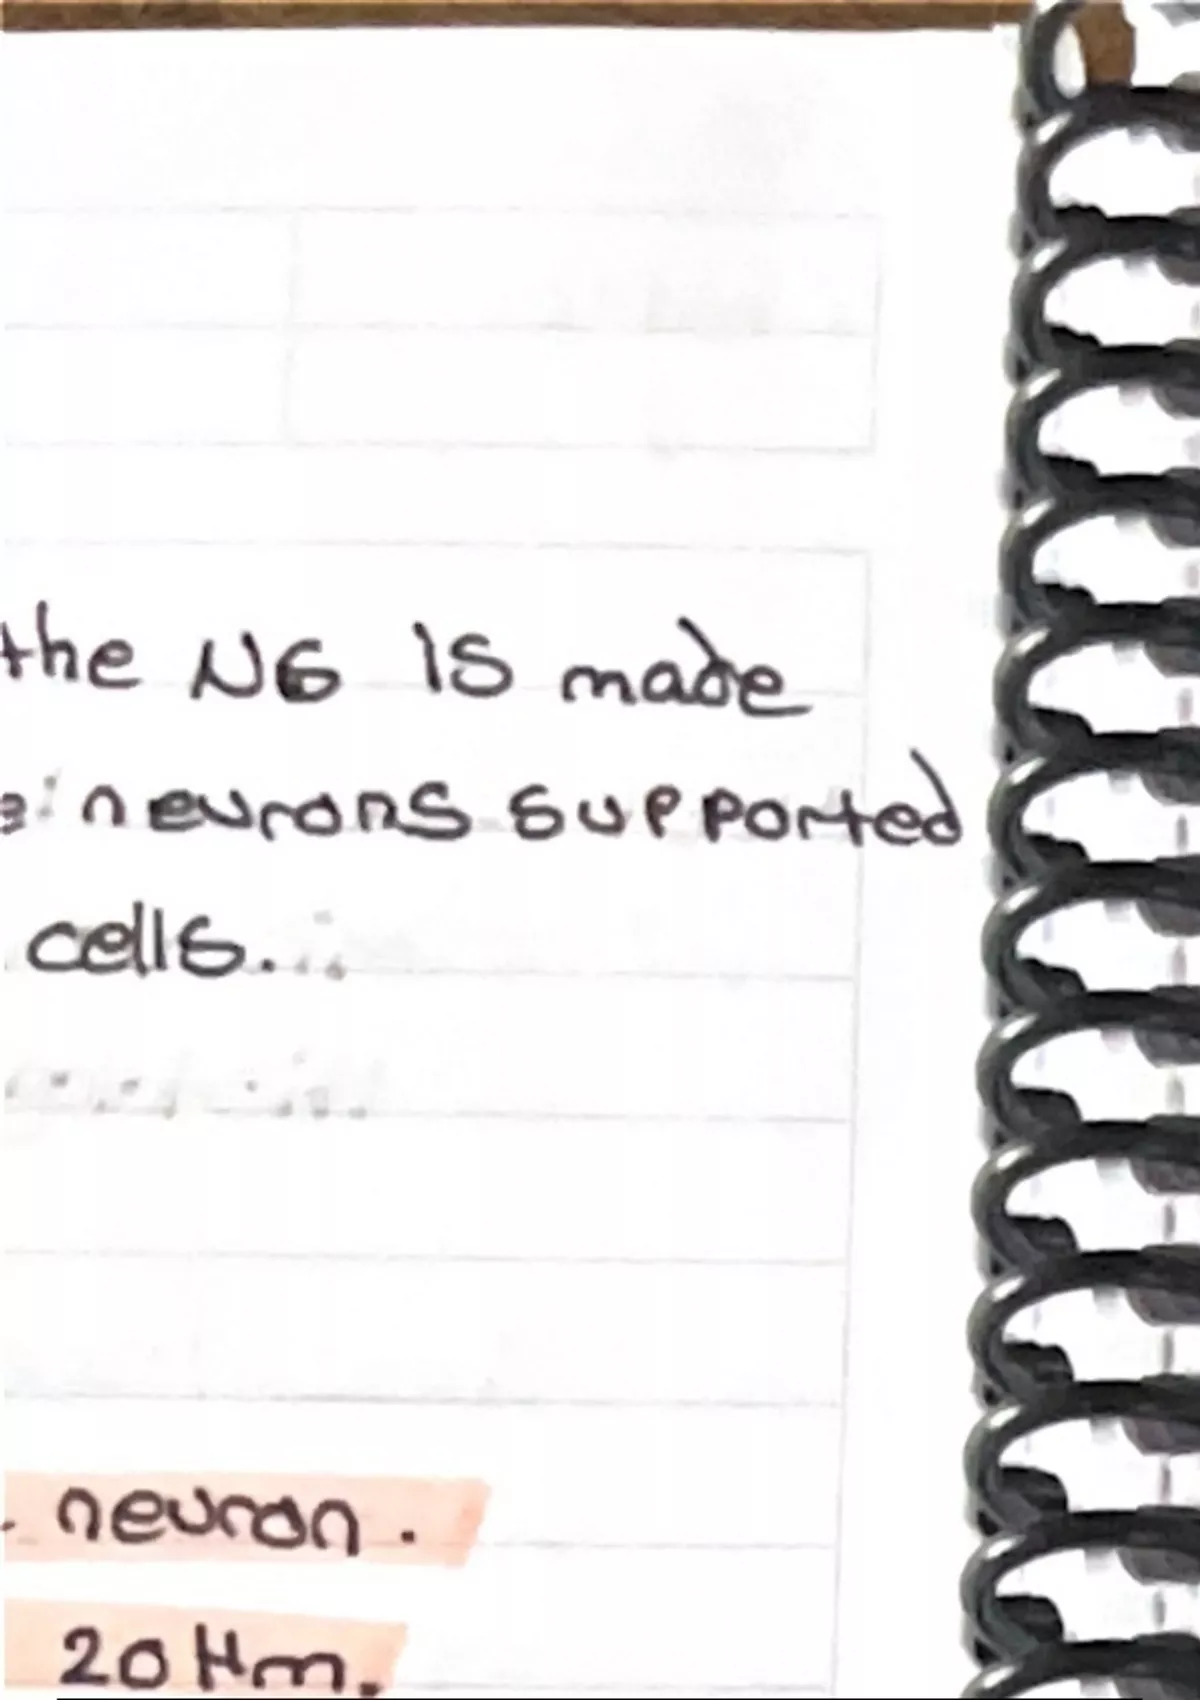 the NG is made
neurons supported
cells.
neuron.
20 Hm.